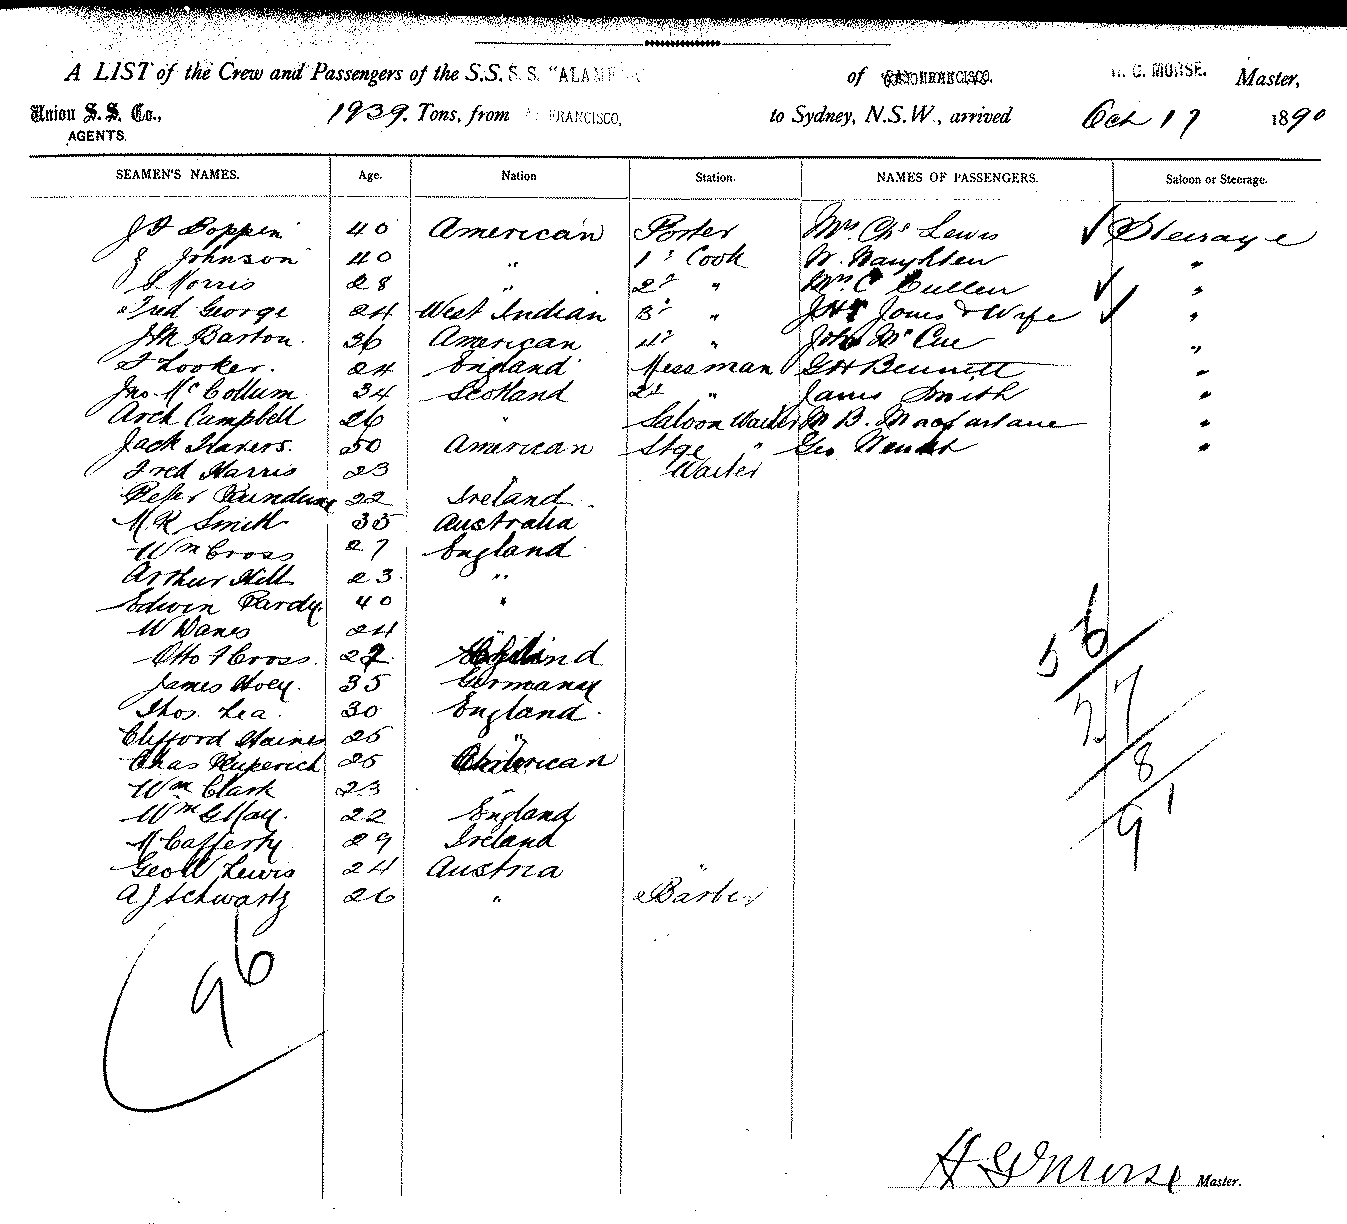 A LIST of the Crew and Passengers of the S.S. S. S. "ALAM of SAN FRANCISCO. H. G. MORSE. Master,
Union S. S. Co., AGENTS. 1939. Tons, from FRANCISCO, to Sydney, N.S.W., arrived Oct 17 1890
SEAMEN'S NAMES. Age. Nation Station. NAMES OF PASSENGERS. Saloon or Steerage.
40 American Porter Mrs. Chs Lewis ✓ Steerage
Johnson 40 " 1st Cook W. Naughten "
S Morris 28 " 2d " Mrs C Cullen ✓ "
Fred George 24 West Indian 3d " Jones & Wife ✓ "
J M Barton. 36 American 4th " John McCue "
F Hooker. 24 England Messman G H Bennett "
Jno. McCollum 34 Scotland 2d " James Smith "
Arch Campbell 26 " Saloon Waiter M B. Macfarlane "
Jack Travers. 50 American Stge " Geo "
Fred Harris 23 Waiter
Peter 22 Ireland
M R Smith 35 Australia
Wm Cross 27 England
Arthur Hill 23 "
Edwin Pardy. 40 "
W Danes 24 "
Otto F Cross. 27
James Hoey. 35 Germany
Thos. Lea. 30 England
Clifford Haines 25 "
Chas 25 American
Wm Clark 23 "
Wm G May. 22 England
McCafferty 29 Ireland
Geo W Lewis 24 Austria "
A J Schwartz 26 " Barber
56
37
8
91
96
H G Morse Master.